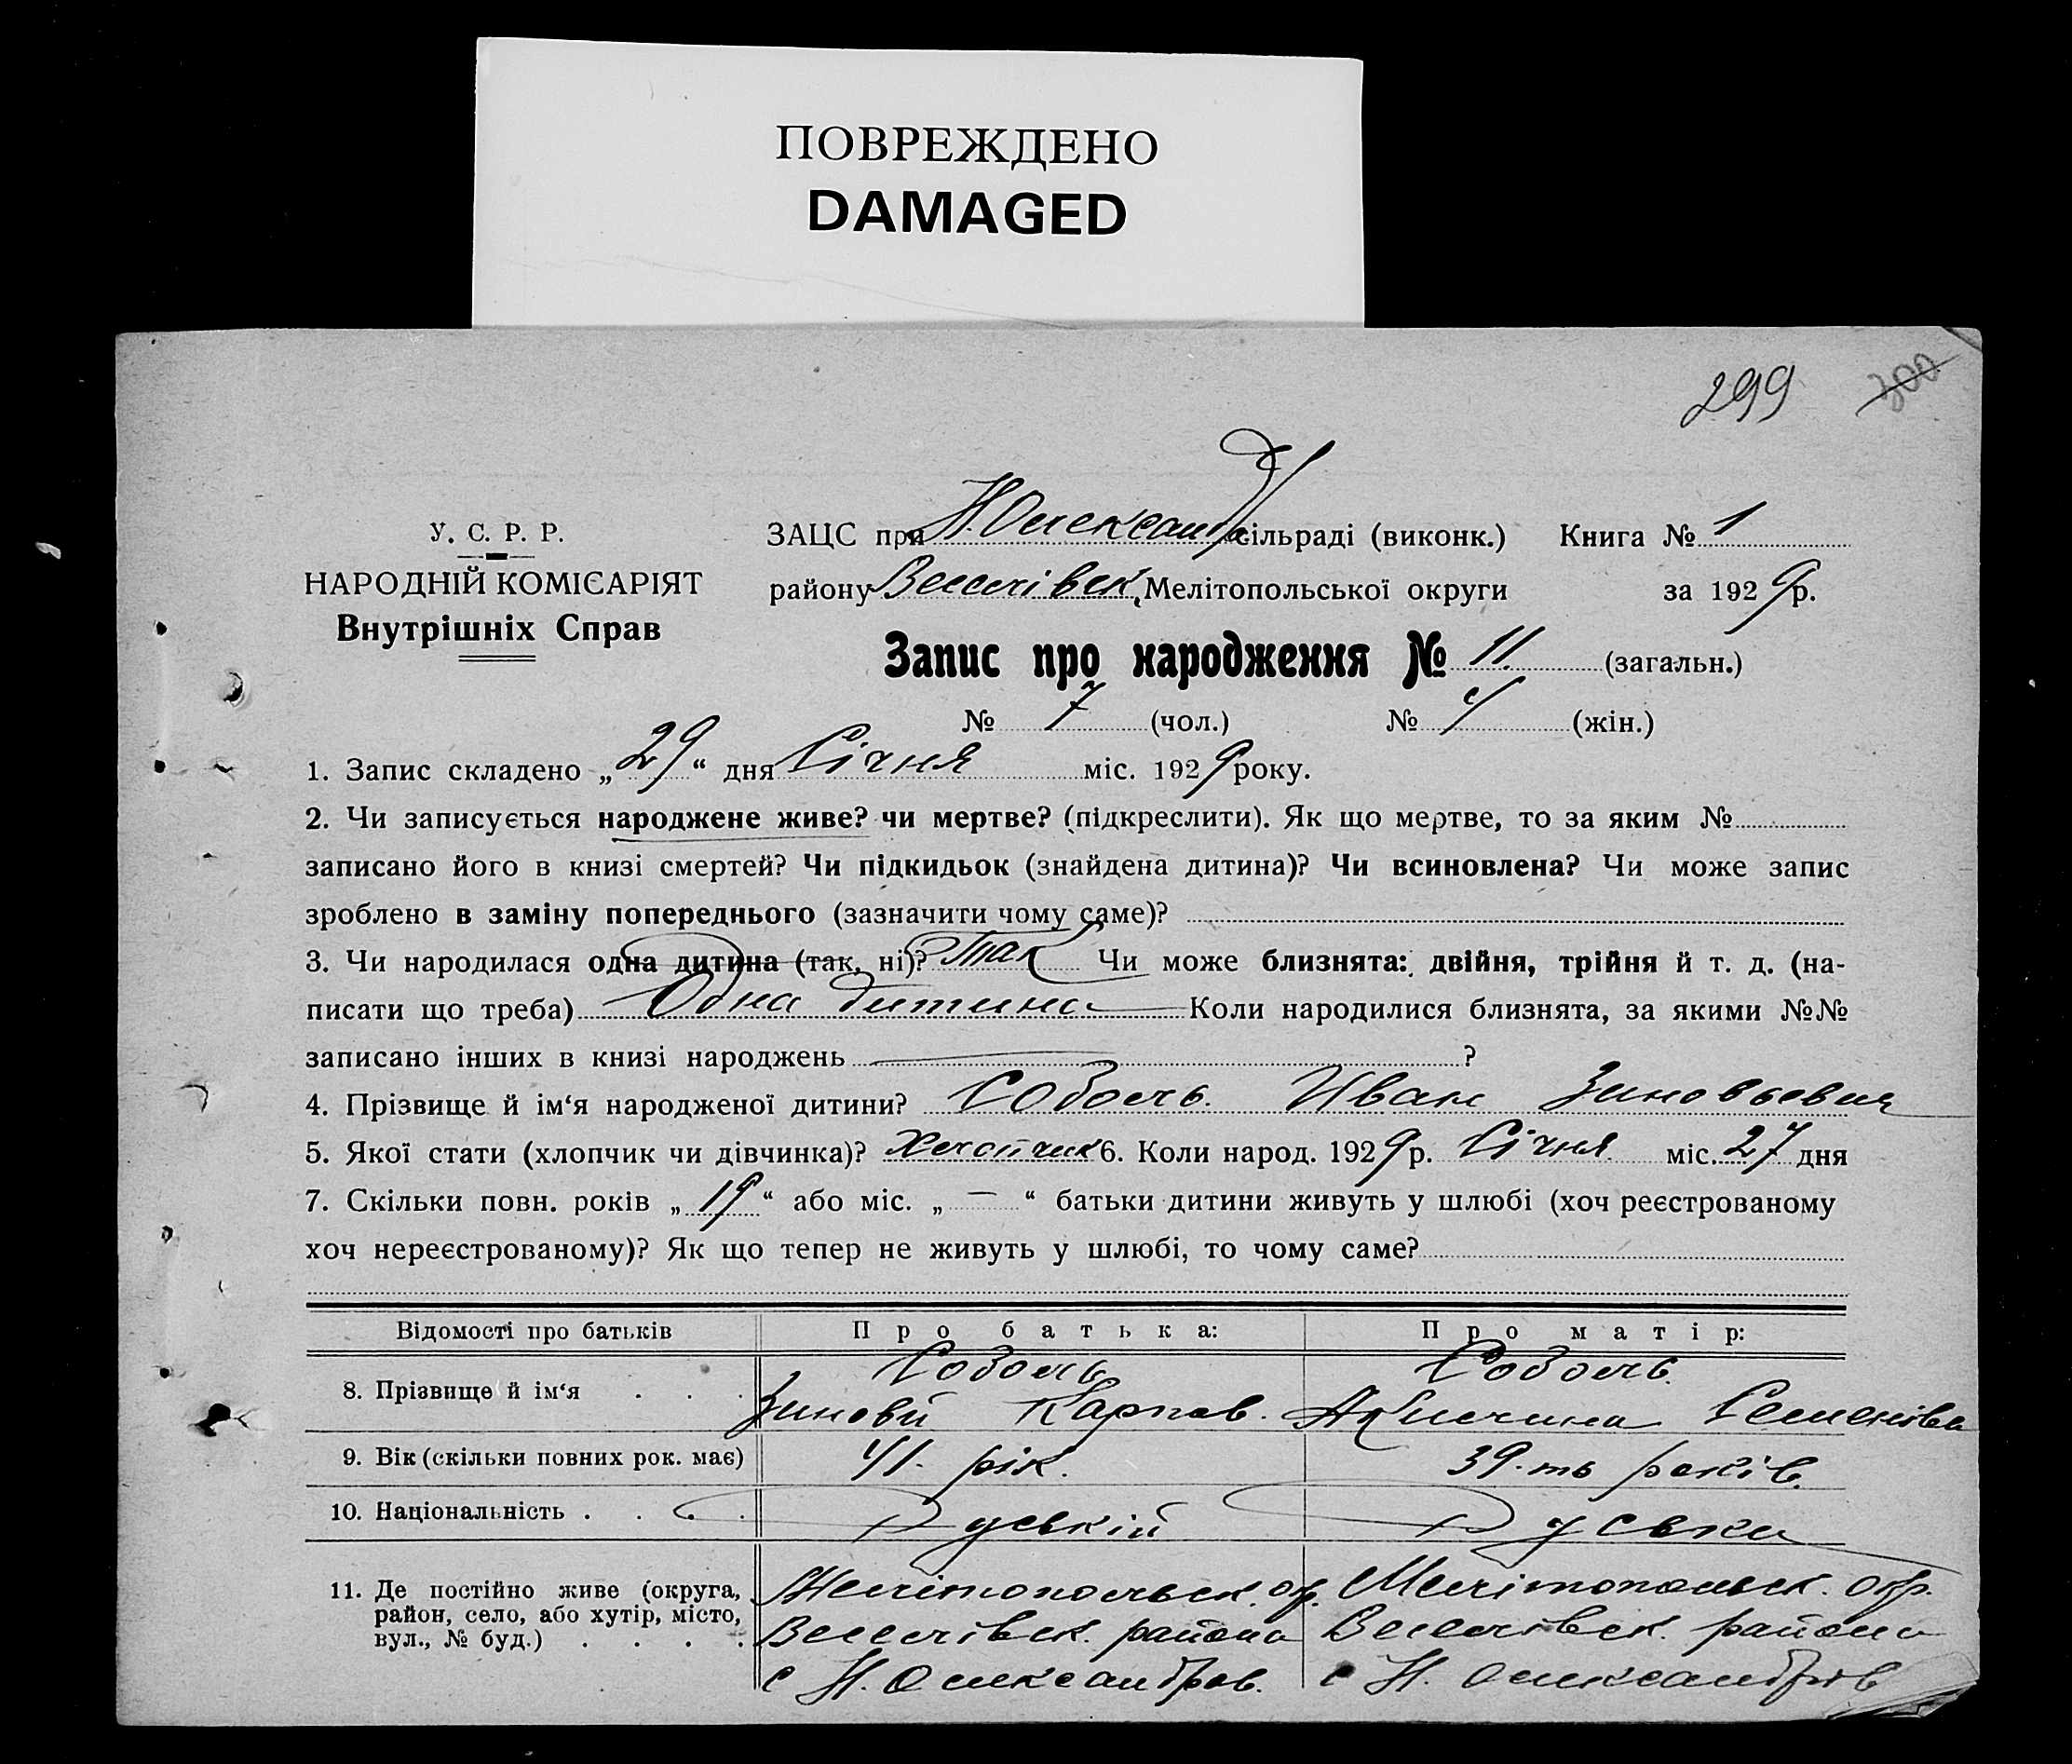 ПОВРЕЖДЕНО
DAMAGED
299 300
У. С. Р. Р.
НАРОДНІЙ КОМІСАРІЯТ
Внутрішніх Справ
ЗАЦС при Н. Олександр сільраді (виконк.) Книга № 1
району Веселівськ. Мелітопольської округи за 1929 р.
Запис про народження № 11 (загальн.)
№ 7 (чол.) № 4 (жін.)
1. Запис складено „29“ дня Січня міс. 1929 року.
2. Чи записується народжене живе? чи мертве? (підкреслити). Як що мертве, то за яким №
записано його в книзі смертей? Чи підкидьок (знайдена дитина)? Чи всиновлена? Чи може запис
зроблено в заміну попереднього (зазначити чому саме)?
3. Чи народилася одна дитина (так, ні)? Так Чи може близнята: двійня, трійня й т. д. (на-
писати що треба) Одна дитина Коли народилися близнята, за якими №№
записано інших в книзі народжень ?
4. Прізвище й ім‘я народженої дитини? Соболь Иван Зиновьевич
5. Якої стати (хлопчик чи дівчинка)? Хлопчик 6. Коли народ. 1929 р. Січня міс. 27 дня
7. Скільки повн. років „19“ або міс. „—“ батьки дитини живуть у шлюбі (хоч реєстрованому
хоч нереєстрованому)? Як що тепер не живуть у шлюбі, то чому саме?
Відомості про батьків Про батька: Про матір:
8. Прізвище й ім‘я . . . Соболь Соболь
Зиновій Карпов. Акилина Семенівна
9. Вік (скільки повних рок. має) 41. рік. 39-ть років.
10. Національність . . . . Руський Руська
11. Де постійно живе (округа, район, село, або хутір, місто, вул., № буд.) . . . . Мелітопольск. окр. Мелітопольск. окр.
Веселівск. района Веселівск. района
с Н. Олександров. с Н. Олександрів